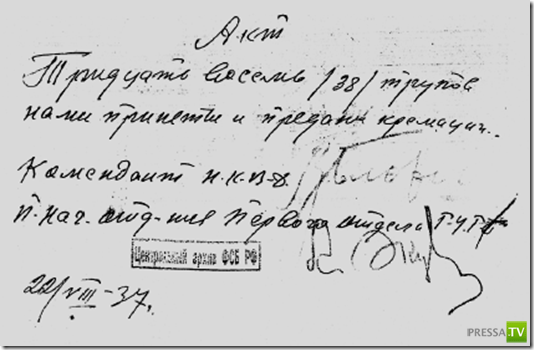 Акт
Тридцать восемь /38/ трупов
нами приняты и преданы кремации.
Комендант Н-К-В-Д.
П. нач. отд-ния Первого отдела Г.У.Г.Б
Центральный архив ФСБ РФ
22/VIII-37.
PRESSA.TV